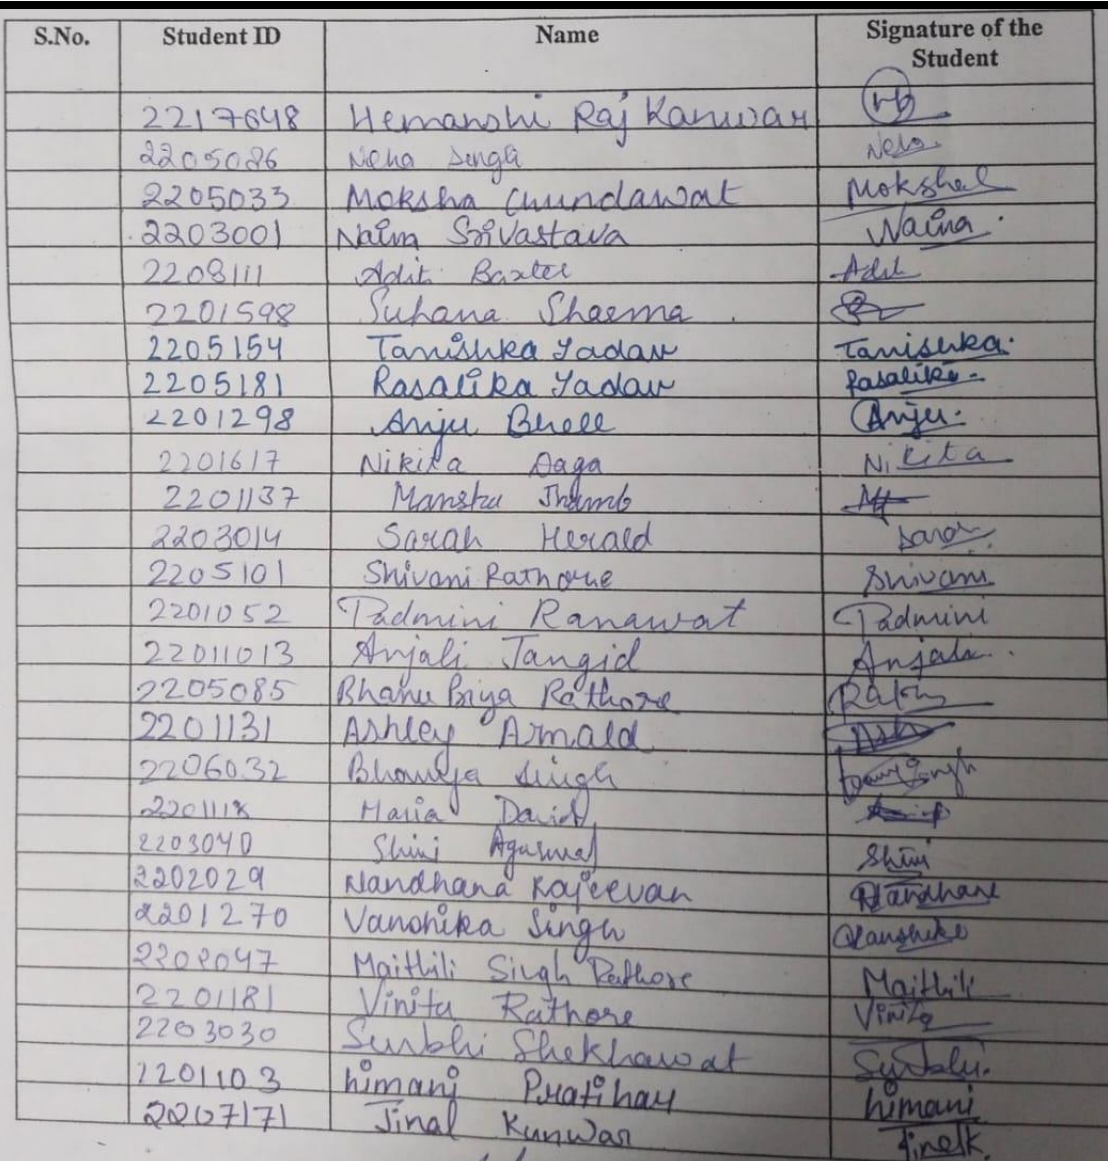 S.No. Student ID Name Signature of the Student
2217648 Hemanshi Raj Kanwar
2205086 Neha Singh Neha
2205033 Moksha Chundawat Moksha
2203001 Naina Srivastava Naina
2208111 Aditi Baxter Aditi
2201598 Suhana Sharma
2205154 Tanishka Yadav Tanishka
2205181 Rasalika Yadav Rasalika
2201298 Anju Anju
2201617 Nikita Daga Nikita
2201137
2203014 Sarah Herald Sarah
2205101 Shivani Rathore Shivani
2201052 Padmini Ranawat Padmini
22011013 Anjali Jangid Anjali
2205085 Bhanu Priya Rathore
2201131 Ashley Arnald Ash
2206032 Bhavya Singh
2201118 Maria David
2203040 Shini Agarwal Shini
2202029 Nandhana Rajeevan Nandhana
2201270 Vanshika Singh Vanshika
2202047 Maithili Singh Rathore Maithili
2201181 Vinita Rathore Vinita
2203030 Surbhi Shekhawat Surbhi
2201103 himani Pratihar himani
2207171 Jinal Kunwar Jinal K.